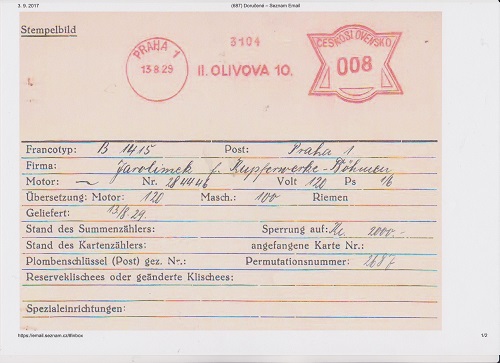 3. 9. 2017 (687) Doručené – Seznam Email
Stempelbild
PRAHA 1
13.8.29
3104
II. OLIVOVA 10.
ČESKOSLOVENSKO
008
Francotyp: B 1415 Post: Praha 1
Firma: Jarolimek f. Kupferwerke-Böhmen
Motor: ~ Nr. 284446 Volt 120 Ps 1/6
Übersetzung: Motor: 120 Masch.: 100 Riemen
Geliefert: 13/8.29.
Stand des Summenzählers: Sperrung auf: Kc. 2000.-
Stand des Kartenzählers: angefangene Karte Nr.:
Plombenschlüssel (Post) gez. Nr.: Permutationsnummer: 2687
Reserveklischees oder geänderte Klischees:
Spezialeinrichtungen:
1/2